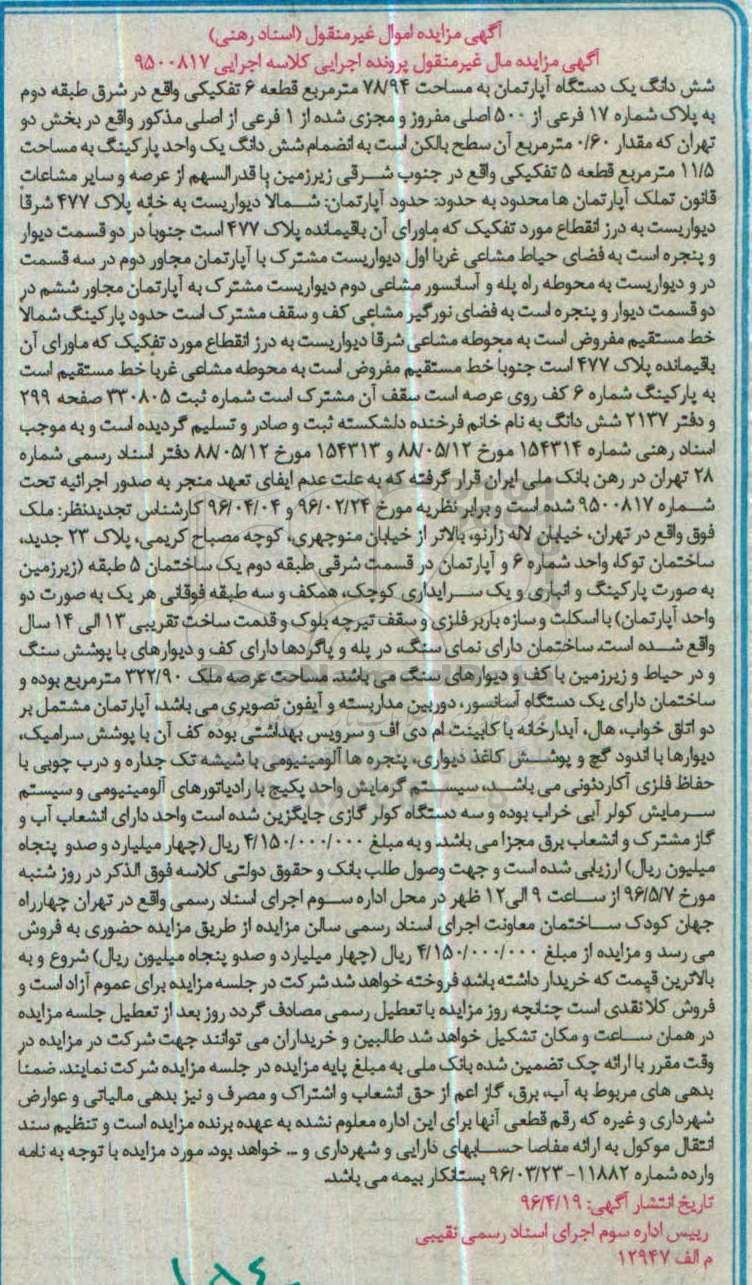 آگهی مزایده اموال غیرمنقول (اسناد رهنی)
آگهی مزایده مال غیرمنقول پرونده اجرایی کلاسه اجرایی ۹۵۰۰۸۱۷
شش دانگ یک دستگاه آپارتمان به مساحت ۷۸/۹۴ مترمربع قطعه ۶ تفکیکی واقع در شرق طبقه دوم
به پلاک شماره ۱۷ فرعی از ۵۰۰ اصلی مفروز و مجزی شده از ۱ فرعی از اصلی مذکور واقع در بخش دو
تهران که مقدار ۰/۶۰ مترمربع آن سطح بالکن است به انضمام شش دانگ یک واحد پارکینگ به مساحت
۱۱/۵ مترمربع قطعه ۵ تفکیکی واقع در جنوب شرقی زیرزمین با قدرالسهم از عرصه و سایر مشاعات
قانون تملک آپارتمان ها محدود به حدود: حدود آپارتمان: شمالا دیواریست به خانه پلاک ۴۷۷ شرقا
دیواریست به درز انقطاع مورد تفکیک که ماورای آن باقیمانده پلاک ۴۷۷ است جنوبا در دو قسمت دیوار
و پنجره است به فضای حیاط مشاعی غربا اول دیواریست مشترک با آپارتمان مجاور دوم در سه قسمت
در و دیواریست به محوطه راه پله و آسانسور مشاعی دوم دیواریست مشترک به آپارتمان مجاور ششم در
دو قسمت دیوار و پنجره است به فضای نورگیر مشاعی کف و سقف مشترک است حدود پارکینگ شمالا
خط مستقیم مفروض است به محوطه مشاعی شرقا دیواریست به درز انقطاع مورد تفکیک که ماورای آن
باقیمانده پلاک ۴۷۷ است جنوبا خط مستقیم مفروض است به محوطه مشاعی غربا خط مستقیم است
به پارکینگ شماره ۶ کف روی عرصه است سقف آن مشترک است شماره ثبت ۳۳۰۸۰۵ صفحه ۲۹۹
و دفتر ۲۱۳۷ شش دانگ به نام خانم فرخنده دلشکسته ثبت و صادر و تسلیم گردیده است و به موجب
اسناد رهنی شماره ۱۵۴۳۱۴ مورخ ۸۸/۰۵/۱۲ و ۱۵۴۳۱۳ مورخ ۸۸/۰۵/۱۲ دفتر اسناد رسمی شماره
۲۸ تهران در رهن بانک ملی ایران قرار گرفته که به علت عدم ایفای تعهد منجر به صدور اجرائیه تحت
شماره ۹۵۰۰۸۱۷ شده است و برابر نظریه مورخ ۹۶/۰۲/۲۴ و ۹۶/۰۴/۰۴ کارشناس تجدیدنظر: ملک
فوق واقع در تهران، خیابان لاله زارنو، بالاتر از خیابان منوچهری، کوچه مصباح کریمی، پلاک ۲۳ جدید،
ساختمان توکا، واحد شماره ۶ و آپارتمان در قسمت شرقی طبقه دوم یک ساختمان ۵ طبقه (زیرزمین
به صورت پارکینگ و انباری و یک سرایداری کوچک، همکف و سه طبقه فوقانی هر یک به صورت دو
واحد آپارتمان) با اسکلت و سازه باربر فلزی و سقف تیرچه بلوک و قدمت ساخت تقریبی ۱۳ الی ۱۴ سال
واقع شده است. ساختمان دارای نمای سنگ، در پله و پاگردها دارای کف و دیوارهای با پوشش سنگ
و در حیاط و زیرزمین با کف و دیوارهای سنگ می باشد. مساحت عرصه ملک ۳۲۲/۹۰ مترمربع بوده و
ساختمان دارای یک دستگاه آسانسور، دوربین مداربسته و آیفون تصویری می باشد، آپارتمان مشتمل بر
دو اتاق خواب، هال، آبدارخانه با کابینت ام دی اف و سرویس بهداشتی بوده کف آن با پوشش سرامیک،
دیوارها با اندود گچ و پوشش کاغذ دیواری، پنجره ها آلومینیومی با شیشه تک جداره و درب چوبی با
حفاظ فلزی آکاردئونی می باشد، سیستم گرمایش واحد پکیج با رادیاتورهای آلومینیومی و سیستم
سرمایش کولر آبی خراب بوده و سه دستگاه کولر گازی جایگزین شده است واحد دارای انشعاب آب و
گاز مشترک و انشعاب برق مجزا می باشد. و به مبلغ ۴/۱۵۰/۰۰۰/۰۰۰ ریال (چهار میلیارد و صدو پنجاه
میلیون ریال) ارزیابی شده است و جهت وصول طلب بانک و حقوق دولتی کلاسه فوق الذکر در روز شنبه
مورخ ۹۶/۵/۷ از ساعت ۹ الی ۱۲ ظهر در محل اداره سوم اجرای اسناد رسمی واقع در تهران چهارراه
جهان کودک ساختمان معاونت اجرای اسناد رسمی سالن مزایده از طریق مزایده حضوری به فروش
می رسد و مزایده از مبلغ ۴/۱۵۰/۰۰۰/۰۰۰ ریال (چهار میلیارد و صدو پنجاه میلیون ریال) شروع و به
بالاترین قیمت که خریدار داشته باشد فروخته خواهد شد شرکت در جلسه مزایده برای عموم آزاد است و
فروش کلا نقدی است چنانچه روز مزایده با تعطیل رسمی مصادف گردد روز بعد از تعطیل جلسه مزایده
در همان ساعت و مکان تشکیل خواهد شد طالبین و خریداران می توانند جهت شرکت در مزایده در
وقت مقرر با ارائه چک تضمین شده بانک ملی به مبلغ پایه مزایده در جلسه مزایده شرکت نمایند. ضمنا
بدهی های مربوط به آب، برق، گاز اعم از حق انشعاب و اشتراک و مصرف و نیز بدهی مالیاتی و عوارض
شهرداری و غیره که رقم قطعی آنها برای این اداره معلوم نشده به عهده برنده مزایده است و تنظیم سند
انتقال موکول به ارائه مفاصا حسابهای دارایی و شهرداری و ... خواهد بود. مورد مزایده با توجه به نامه
وارده شماره ۱۱۸۸۲-۹۶/۰۳/۲۳ بستانکار بیمه می باشد.
تاریخ انتشار آگهی: ۹۶/۴/۱۹
رییس اداره سوم اجرای اسناد رسمی نقیبی
م الف ۱۲۹۴۷